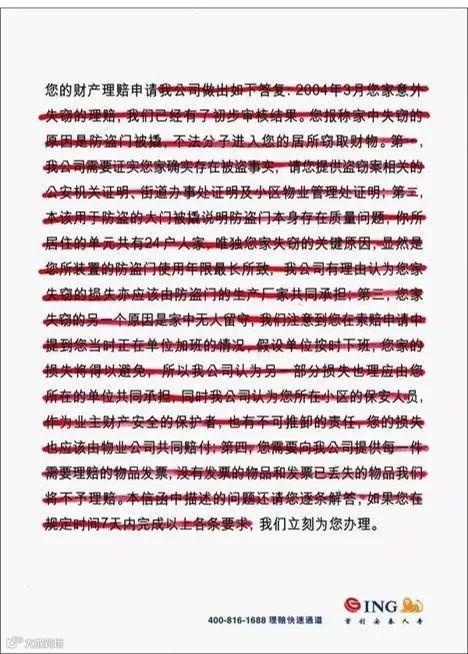 您的财产理赔申请我公司做出如下答复:2004年3月您家意外
失窃的理赔,我们已经有了初步审核结果。您报称家中失窃的
原因是防盗门被撬,不法分子进入您的居所窃取财物。第一,
我公司需要证实您家确实存在被盗事实,请您提供盗窃案相关的
公安机关证明、街道办事处证明及小区物业管理处证明;第二,
本该用于防盗的大门被撬说明防盗门本身存在质量问题,你所
居住的单元共有24户人家,唯独您家失窃的关键原因,显然是
您所装置的防盗门使用年限最长所致,我公司有理由认为您家
失窃的损失亦应该由防盗门的生产厂家共同承担;第三,您家
失窃的另一个原因是家中无人留守,我们注意到您在索赔申请中
提到您当时正在单位加班的情况,假设单位按时下班,您家的
损失将得以避免,所以我公司认为另一部分损失也理应由您
所在的单位共同承担,同时我公司认为您所在小区的保安人员,
作为业主财产安全的保护者,也有不可推卸的责任,您的损失
也应该由物业公司共同赔付;第四,您需要向我公司提供每一件
需要理赔的物品发票,没有发票的物品和发票已丢失的物品我们
将不予理赔。本信函中描述的问题还请您逐条解答,如果您在
规定时间7天内完成以上各条要求,我们立刻为您办理。
400-816-1688 理赔快速通道
ING
首创安泰人寿
大数跨境